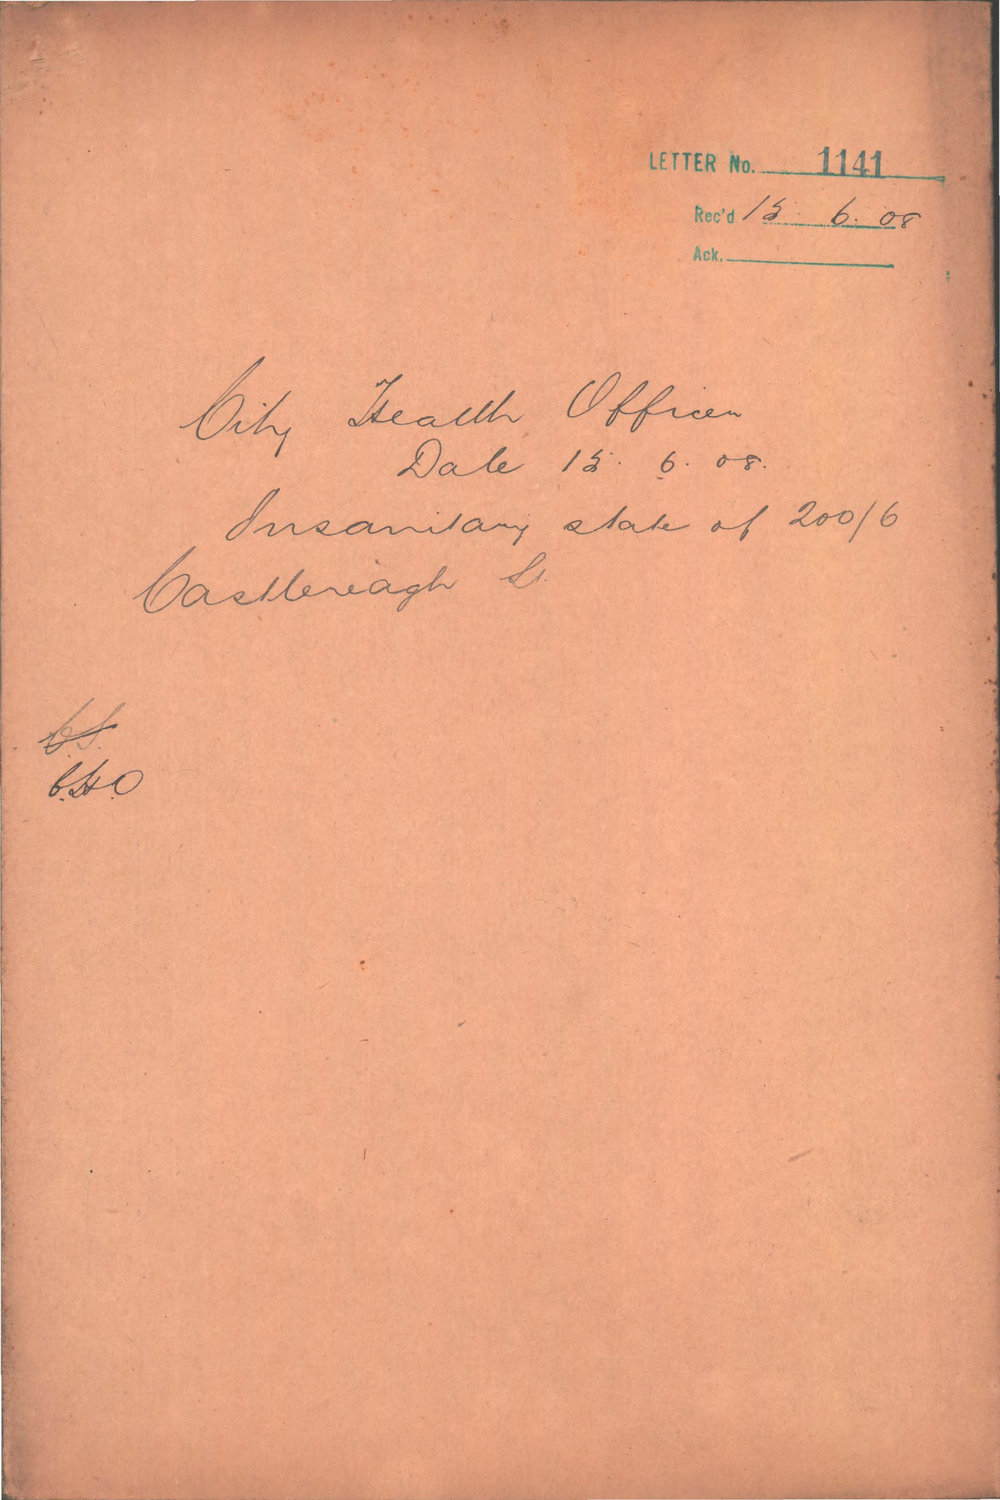 LETTER No. 1141
Rec'd 15 6. 08
Ack.
City Health Officer
Date 15. 6. 08.
Insanitary state of 200/6
Castlereagh St.
C.S.
C.H.O